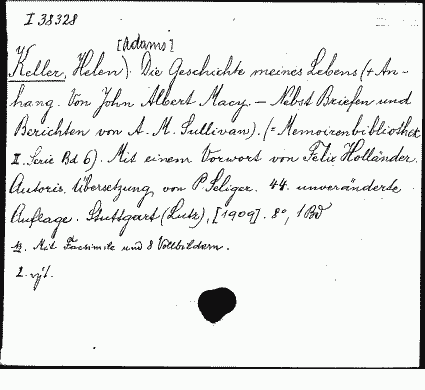 I 38328
[Adams]
Keller, Helen). Die Geschichte meines Lebens (+ An-
hang. Von John Albert Macy. — Nebst Briefen und
Berichten von A. M. Sullivan). (= Memoirenbibliothek
II. Serie Bd 6). Mit einem Vorwort von Felix Holländer.
Autoris. Übersetzung von P. Seliger. 44. unveränderte
Auflage. Stuttgart (Lutz), [1909]. 8°, 1 Bd
Mit Facsimile und 8 Vollbildern.